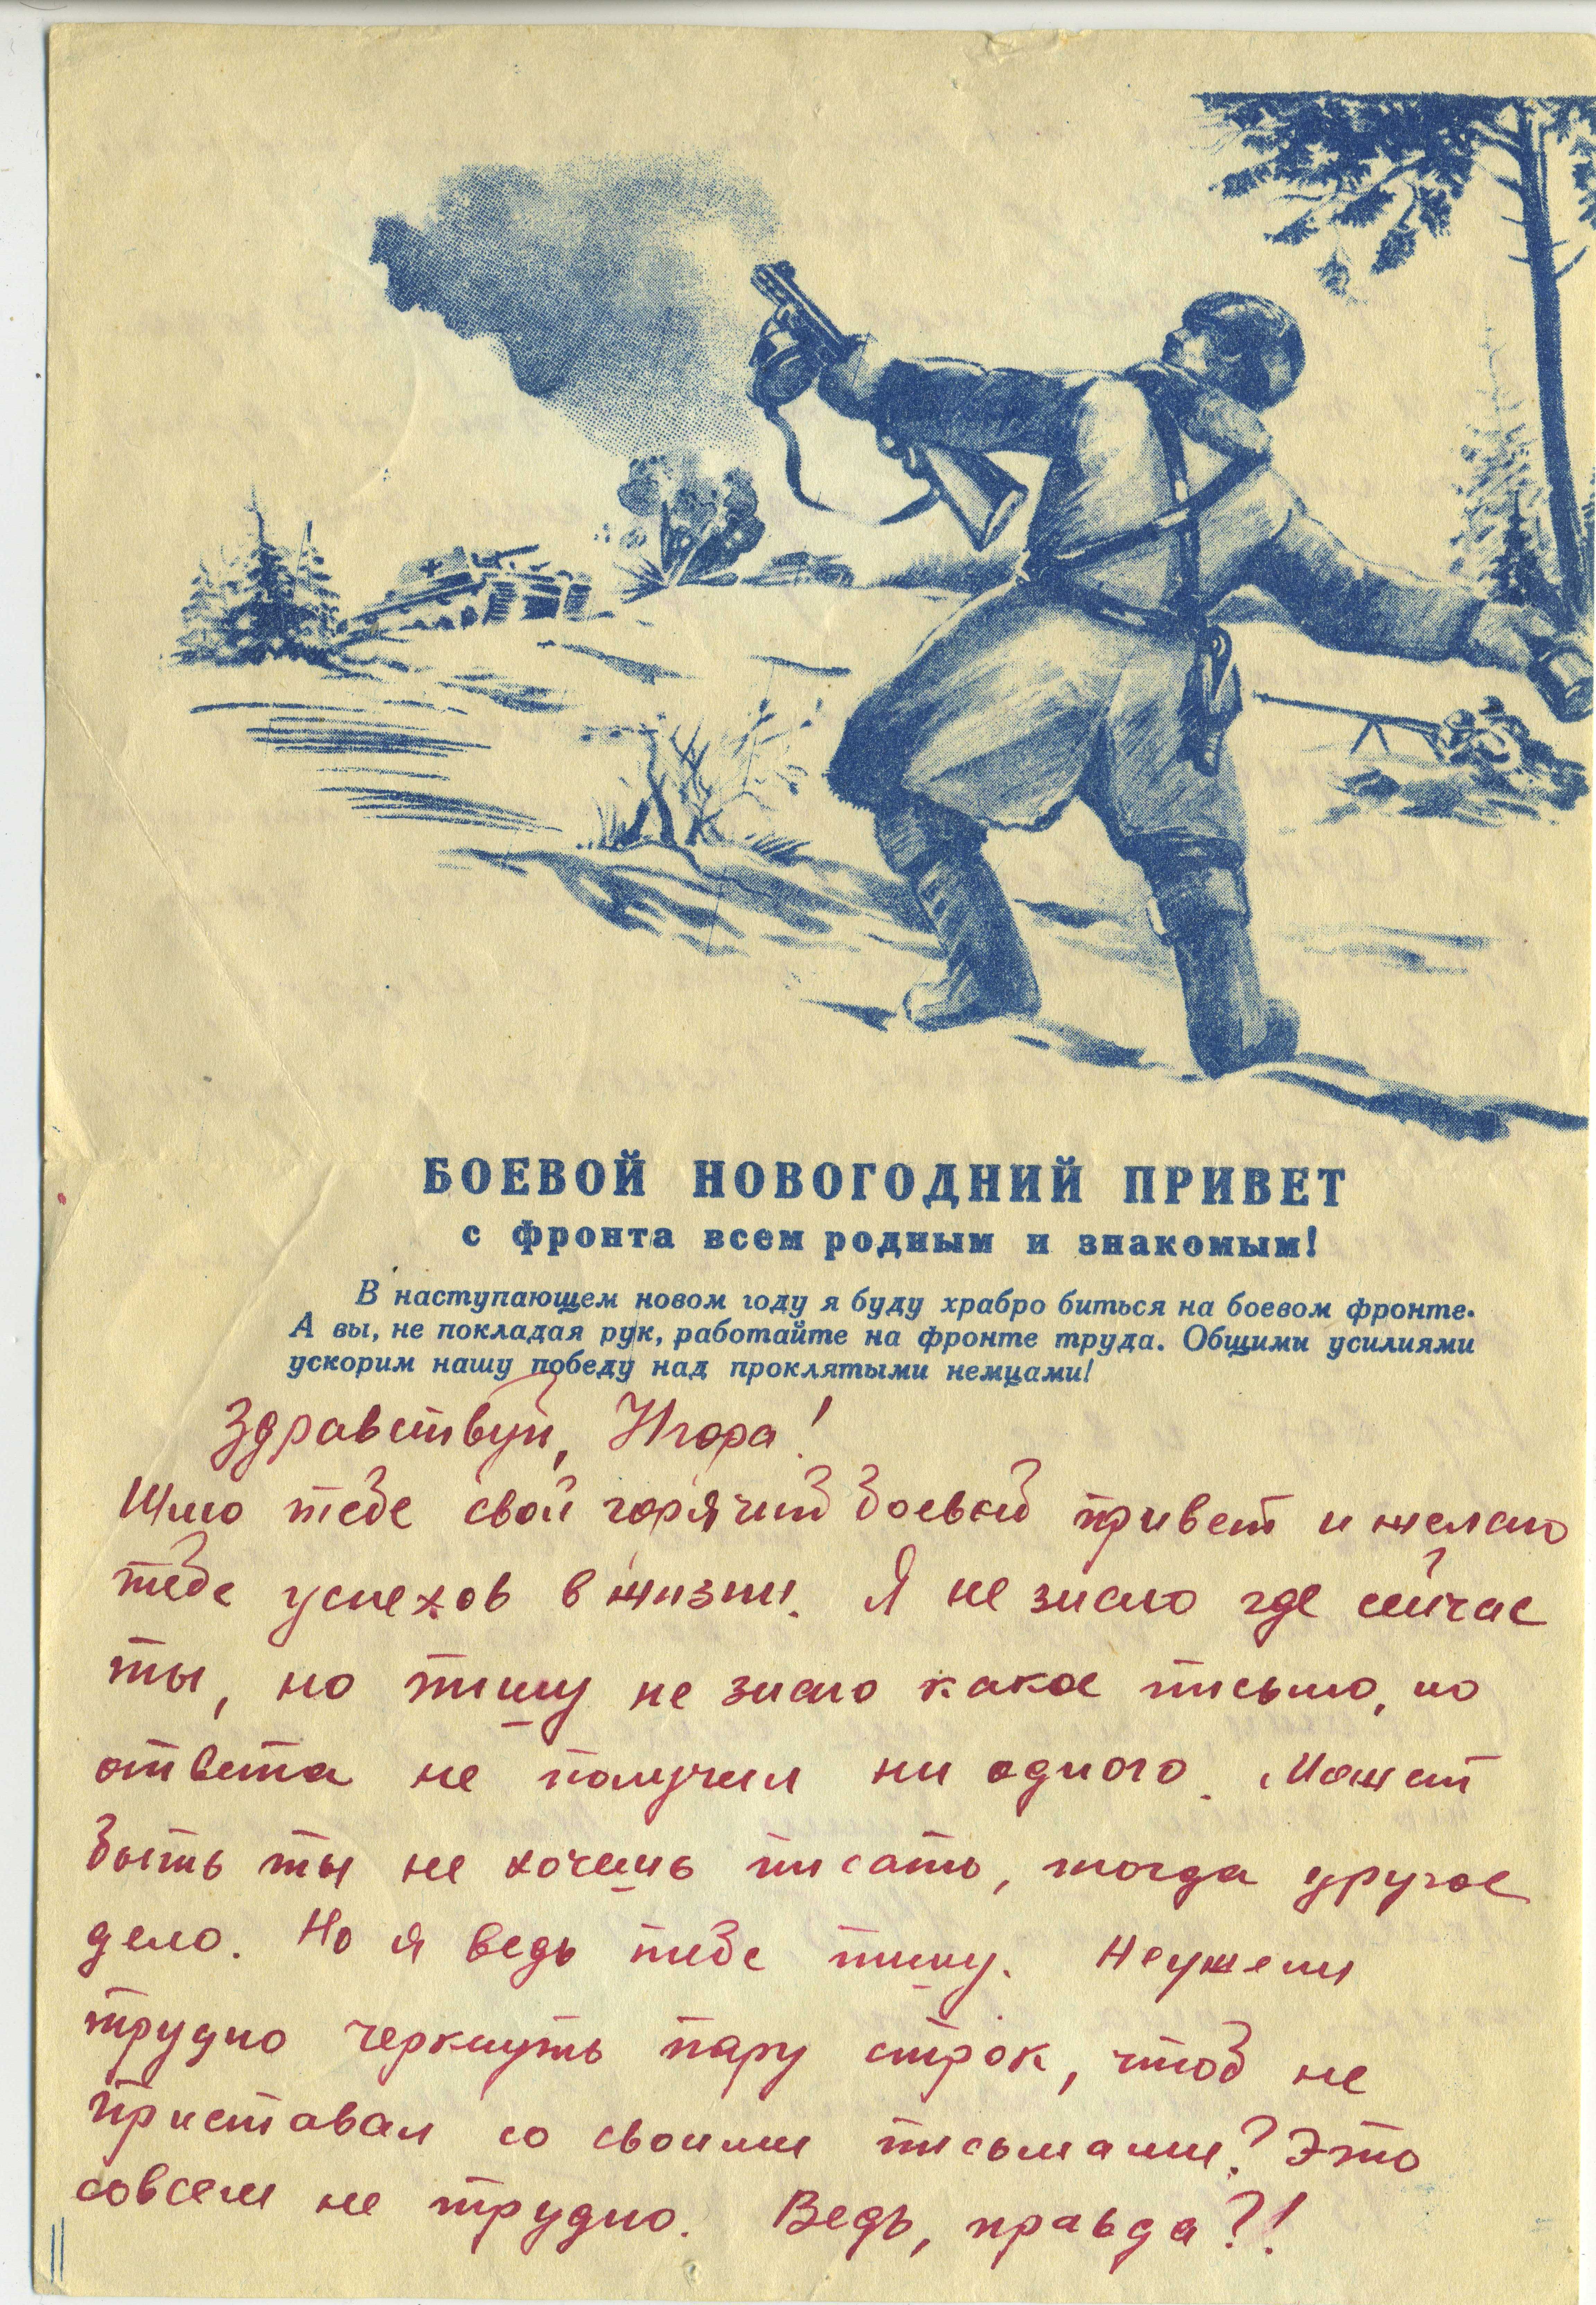 БОЕВОЙ НОВОГОДНИЙ ПРИВЕТ
с фронта всем родным и знакомым!
В наступающем новом году я буду храбро биться на боевом фронте.
А вы, не покладая рук, работайте на фронте труда. Общими усилиями
ускорим нашу победу над проклятыми немцами!
Здравствуй, Нюра!
Шлю тебе свой горячий боевой привет и желаю
тебе успехов в жизни. Я не знаю где сейчас
ты, но пишу не знаю какое письмо, но
ответа не получил ни одного. Может
быть ты не хочешь писать, тогда другое
дело. Но я ведь тебе пишу. Неужели
трудно черкнуть пару строк, чтоб не
приставал со своими письмами? Это
совсем не трудно. Ведь, правда?!